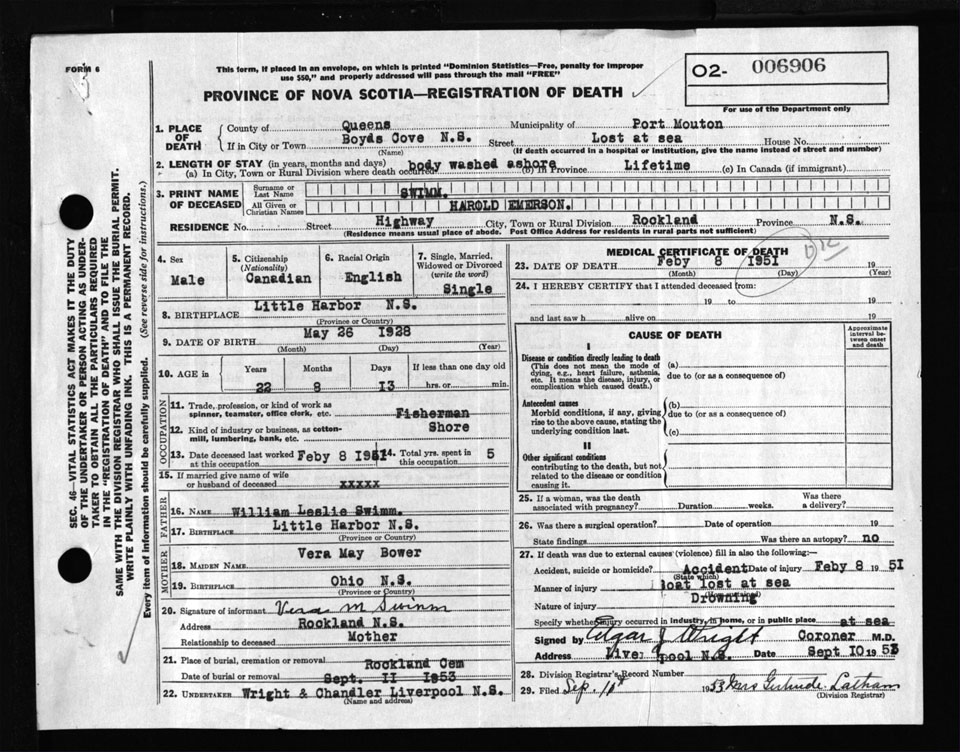 FORM 6
This form, if placed in an envelope, on which is printed "Dominion Statistics—Free, penalty for improper
use $50," and properly addressed will pass through the mail "FREE"
PROVINCE OF NOVA SCOTIA—REGISTRATION OF DEATH
O2- 006906
For use of the Department only
1. PLACE OF DEATH
County of Queens Municipality of Port Mouton
If in City or Town Boyds Cove N.S. Street Lost at sea House No.
(Name) (If death occurred in a hospital or institution, give the name instead of street and number)
2. LENGTH OF STAY (in years, months and days)
(a) In City, Town or Rural Division where death occurred body washed ashore (b) In Province Lifetime (c) In Canada (if immigrant)
3. PRINT NAME OF DECEASED
Surname or Last Name SWIMM.
All Given or Christian Names HAROLD EMERSON.
RESIDENCE No. Street Highway City, Town or Rural Division Rockland Province N.S.
(Residence means usual place of abode. Post Office Address for residents in rural parts not sufficient)
4. Sex Male
5. Citizenship (Nationality) Canadian
6. Racial Origin English
7. Single, Married, Widowed or Divorced (write the word) Single
8. BIRTHPLACE Little Harbor N.S.
(Province or Country)
9. DATE OF BIRTH May 26 I928
(Month) (Day) (Year)
10. AGE in Years Months Days If less than one day old
22 8 I3 hrs. or min.
OCCUPATION
11. Trade, profession, or kind of work as spinner, teamster, office clerk, etc. Fisherman
12. Kind of industry or business, as cotton-mill, lumbering, bank, etc. Shore
13. Date deceased last worked at this occupation Feby 8 I951
14. Total yrs. spent in this occupation 5
15. If married give name of wife or husband of deceased xxxxx
FATHER
16. NAME William Leslie Swimm.
17. BIRTHPLACE Little Harbor N.S.
(Province or Country)
MOTHER
18. MAIDEN NAME Vera May Bower
19. BIRTHPLACE Ohio N.S.
(Province or Country)
20. Signature of informant Vera M Swimm
Address Rockland N.S.
Relationship to deceased Mother
21. Place of burial, cremation or removal Rockland Cem
Date of burial or removal Sept. II I953
22. UNDERTAKER Wright & Chandler Liverpool N.S.
(Name and address)
MEDICAL CERTIFICATE OF DEATH
23. DATE OF DEATH Feby 8 I951 19
(Month) (Day) (Year)
24. I HEREBY CERTIFY that I attended deceased from:
19 to 19
and last saw h alive on 19
CAUSE OF DEATH
Approximate interval between onset and death
I
Disease or condition directly leading to death (a)
(This does not mean the mode of dying, e.g., heart failure, asthenia, etc. It means the disease, injury, or complication which caused death.)
due to (or as a consequence of)
Antecedent causes (b)
Morbid conditions, if any, giving rise to the above cause, stating the underlying condition last.
due to (or as a consequence of)
(c)
II
Other significant conditions
contributing to the death, but not related to the disease or condition causing it.
25. If a woman, was the death associated with pregnancy? Duration weeks. Was there a delivery?
26. Was there a surgical operation? Date of operation 19
State findings Was there an autopsy? no
27. If death was due to external causes (violence) fill in also the following:
Accident, suicide or homicide? Accident Date of injury Feby 8 19 51
(State which)
Manner of injury boat lost at sea
Nature of injury Drowning
Specify whether injury occurred in industry, in home, or in public place at sea
Signed by Edgar J Wright Coroner M.D.
Address Liverpool N.S. Date Sept IO 19 53
28. Division Registrar's Record Number
29. Filed Sep. 10th 1953 Mrs Gertrude Latham
(Division Registrar)
SEC. 46—VITAL STATISTICS ACT MAKES IT THE DUTY
OF THE UNDERTAKER OR PERSON ACTING AS UNDER-
TAKER TO OBTAIN ALL THE PARTICULARS REQUIRED
IN THE "REGISTRATION OF DEATH" AND TO FILE THE
SAME WITH THE DIVISION REGISTRAR WHO SHALL ISSUE THE BURIAL PERMIT.
WRITE PLAINLY WITH UNFADING INK. THIS IS A PERMANENT RECORD.
Every item of information should be carefully supplied. (See reverse side for instructions.)